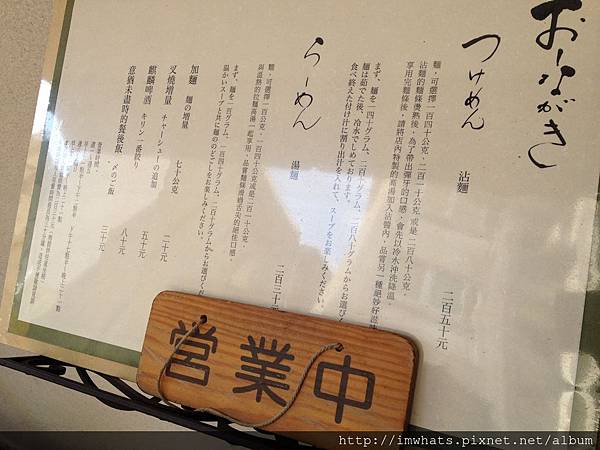 おしながき
つけめん 沾麵 二百五十元
麵，可選擇一百四十公克．二百一十公克 或是 二百八十公克．
沾麵的麵條燙熟後，為了帶出彈牙的口感，會先以冷水沖洗降溫．
享用完麵條後，請將店內特製的高湯加入沾醬內，品嘗另一種絕妙好滋味
まず、麺を一四十グラム、二百十グラム、二百八十グラムからお選びく
麺は茹でた後、冷水でしめております。
食べ終えた付け汁に割り出汁を入れて、スープをお楽しみください。
らーめん 湯麵 二百三十
麵，可選擇一百公克．一百四十公克或是二百一十公克．
與溫熱的拉麵高湯一起享用，品嘗麵條滑過舌尖的絕佳口感．
まず、麺を一百グラム、一百四十グラム、二百十グラムからお選びくだ
温かいスープと共に麺ののどごしをお楽しみください。
加麵 麺の増量 七十公克 二十元
叉燒增量 チャーシューの追加 五十元
麒麟啤酒 キリン一番絞り 八十元
意猶未盡時的餐後飯．〆のご飯 三十元
営業中
http://imwhats.pixnet.net/album